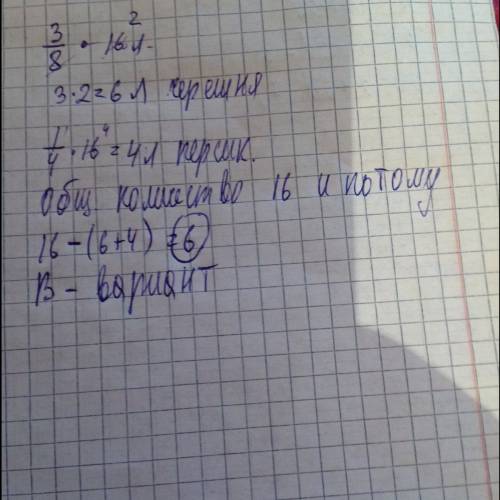 3/8 · 16 л. 2
3·2=6 л черешня
1/4 · 16 4 = 4 л персик.
Общ количество 16 и потому
16-(6+4)=6
В - вариант